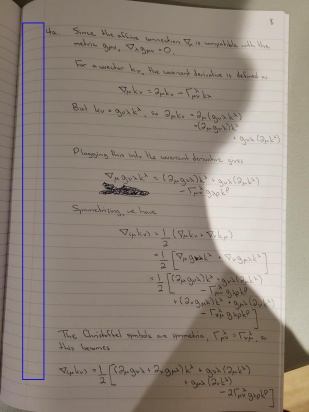 8
4a. Since the affine connection ∇μ is compatible with the
metric gμν, ∇λgμν = 0.
For a covector kν, the covariant derivative is defined as
∇μkν = ∂μkν - Γ^λ_μν kλ
But kν = gνλk^λ, so ∂μkν = ∂μ(gνλk^λ)
= (∂μgνλ)k^λ
+ gνλ(∂μk^λ)
Plugging this into the covariant derivative gives
∇μgνλk^λ = (∂μgνλ)k^λ + gνλ(∂μk^λ)
- Γ^λ_μν gλρk^ρ
Symmetrising, we have
∇(μkν) = 1/2 (∇μkν + ∇νkμ)
= 1/2 [∇μgνλk^λ + ∇νgμλk^λ]
= 1/2 [(∂μgνλ)k^λ + gνλ(∂μk^λ)
- Γ^λ_μν gλρk^ρ
+ (∂νgμλ)k^λ + gμλ(∂νk^λ)
- Γ^λ_νμ gλρk^ρ]
The Christoffel symbols are symmetric, Γ^λ_μν = Γ^λ_νμ, so
this becomes
∇(μkν) = 1/2 [(∂μgνλ + ∂νgμλ)k^λ + gνλ(∂μk^λ)
+ gμλ(∂νk^λ)
- 2Γ^λ_μν gλρk^ρ]